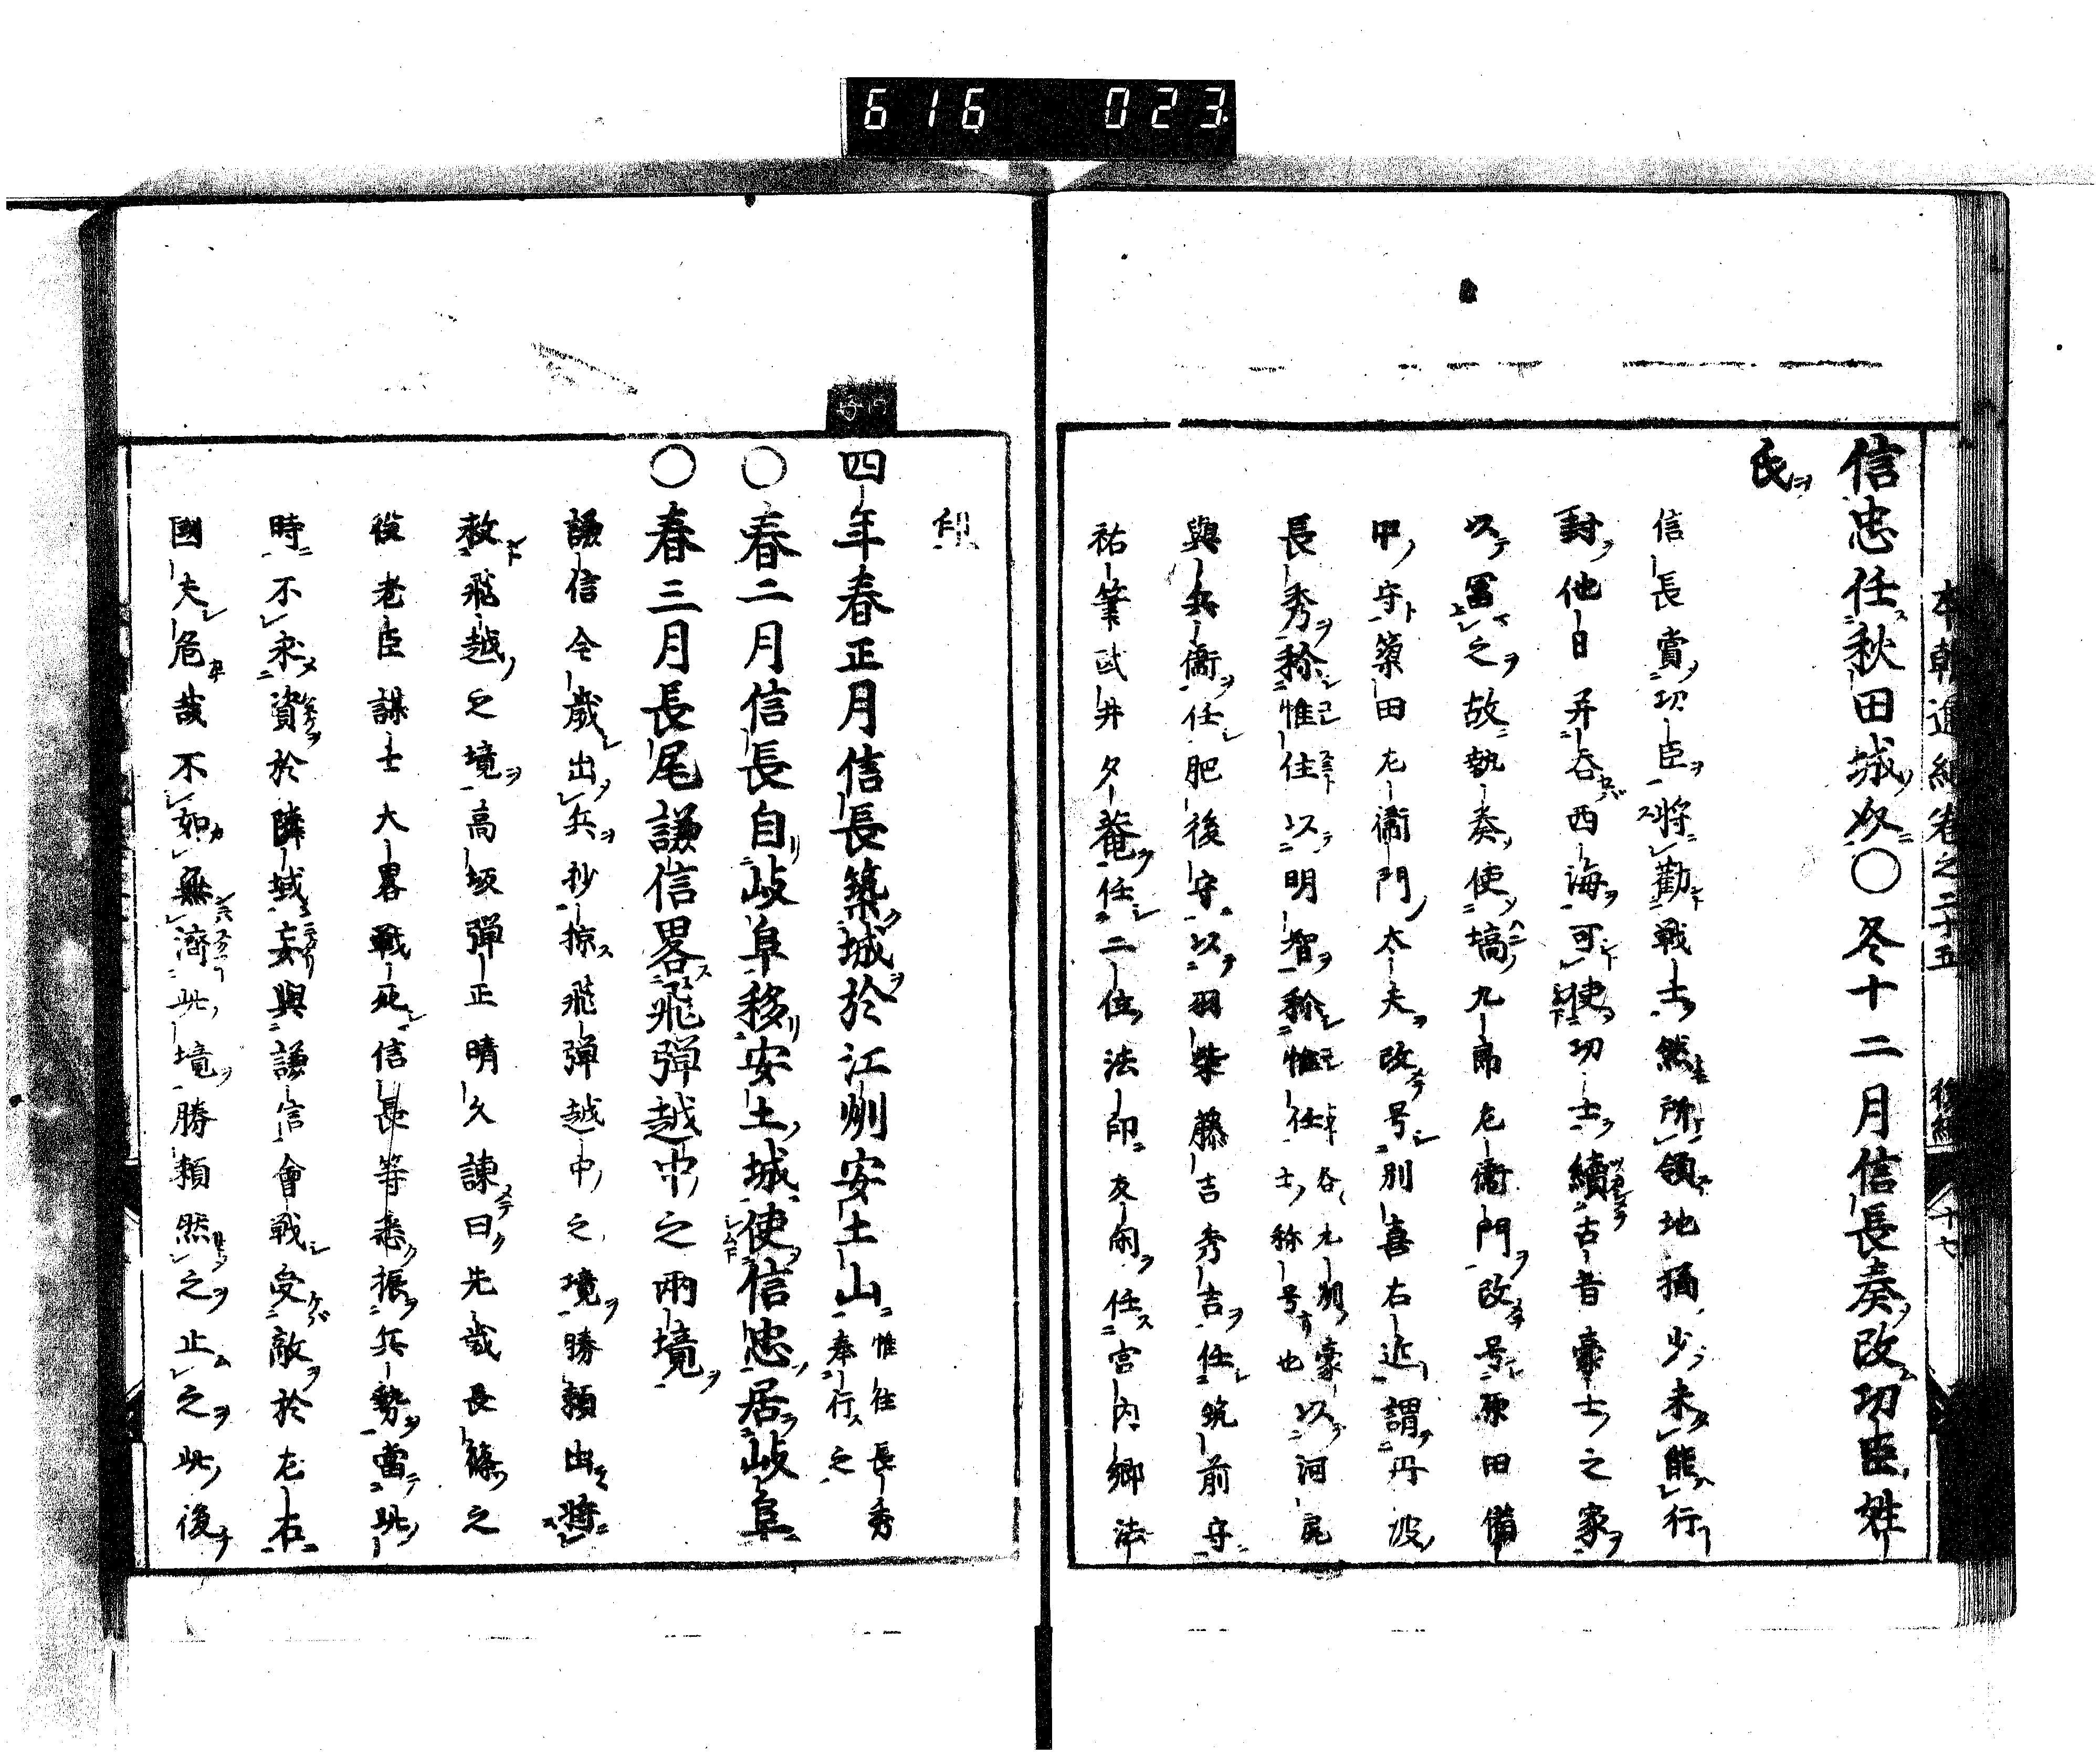 616 023
信忠任秋田城介〇冬十二月信長奏改功臣姓
氏
信長賞功臣將勸戰士然所領地猶少未能行
封他日弄吞西海可使功士續古昔豪士之家
以冨之故執奏使塙九郎左衞門改号原田備
中守簗田左衞門太夫改号別喜右近謂丹波
長秀称惟住以明智称惟任已上各九州豪士称号也以河尻
與兵衞任肥後守以羽柴藤吉秀吉任筑前守
祐筆武井夕菴任二位法印友閑任宮内卿法
印
四年春正月信長築城於江州安土山惟住長秀奉行之
〇春二月信長自岐阜移安土城使信忠居岐阜
〇春三月長尾謙信畧飛彈越中之兩境
謙信今歲出兵抄掠飛彈越中之境勝頼出將
救飛越之境高坂彈正晴久諫曰先歲長篠之
役老臣謀士大畧戰死信長等悉振兵勢當此
時不求資於隣域妄與謙信會戰受敵於左右
國夫危哉不如無濟此境勝頼然之止之此後